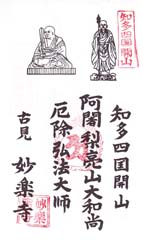 知多四国開山
知多四国開山
阿闍梨亮山大和尚
厄除弘法大師
古見 妙楽寺